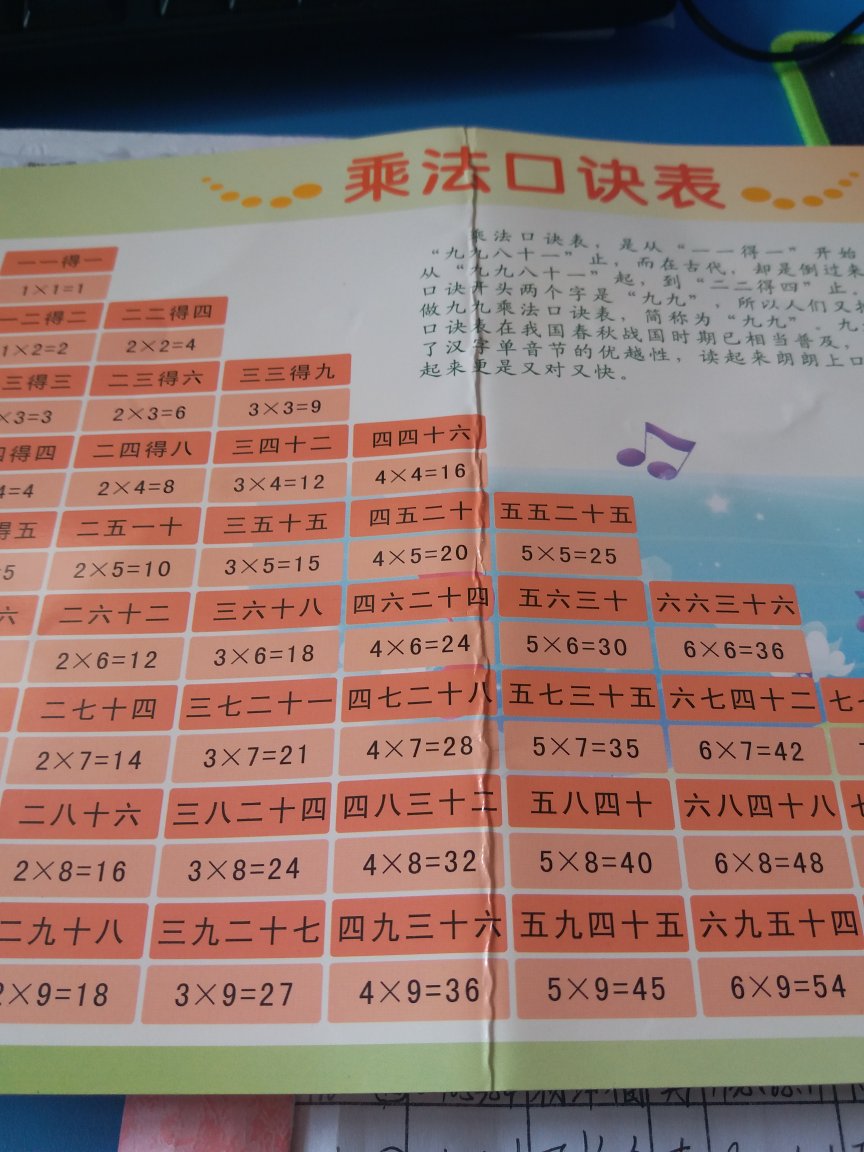 乘法口诀表
乘法口诀表，是从“一一得一”开始
“九九八十一”止，而在古代，却是倒过来
从“九九八十一”起，到“二二得四”止。
口诀开头两个字是“九九”，所以人们又
做九九乘法口诀表，简称为“九九”。九
口诀表在我国春秋战国时期已相当普及，
了汉字单音节的优越性，读起来朗朗上口
起来更是又对又快。
一一得一
1×1=1
一二得二 二二得四
1×2=2 2×2=4
三得三 二三得六 三三得九
×3=3 2×3=6 3×3=9
得四 二四得八 三四十二 四四十六
4=4 2×4=8 3×4=12 4×4=16
得五 二五一十 三五十五 四五二十 五五二十五
5 2×5=10 3×5=15 4×5=20 5×5=25
六 二六十二 三六十八 四六二十四 五六三十 六六三十六
2×6=12 3×6=18 4×6=24 5×6=30 6×6=36
二七十四 三七二十一 四七二十八 五七三十五 六七四十二 七
2×7=14 3×7=21 4×7=28 5×7=35 6×7=42
二八十六 三八二十四 四八三十二 五八四十 六八四十八
2×8=16 3×8=24 4×8=32 5×8=40 6×8=48
二九十八 三九二十七 四九三十六 五九四十五 六九五十四
2×9=18 3×9=27 4×9=36 5×9=45 6×9=54